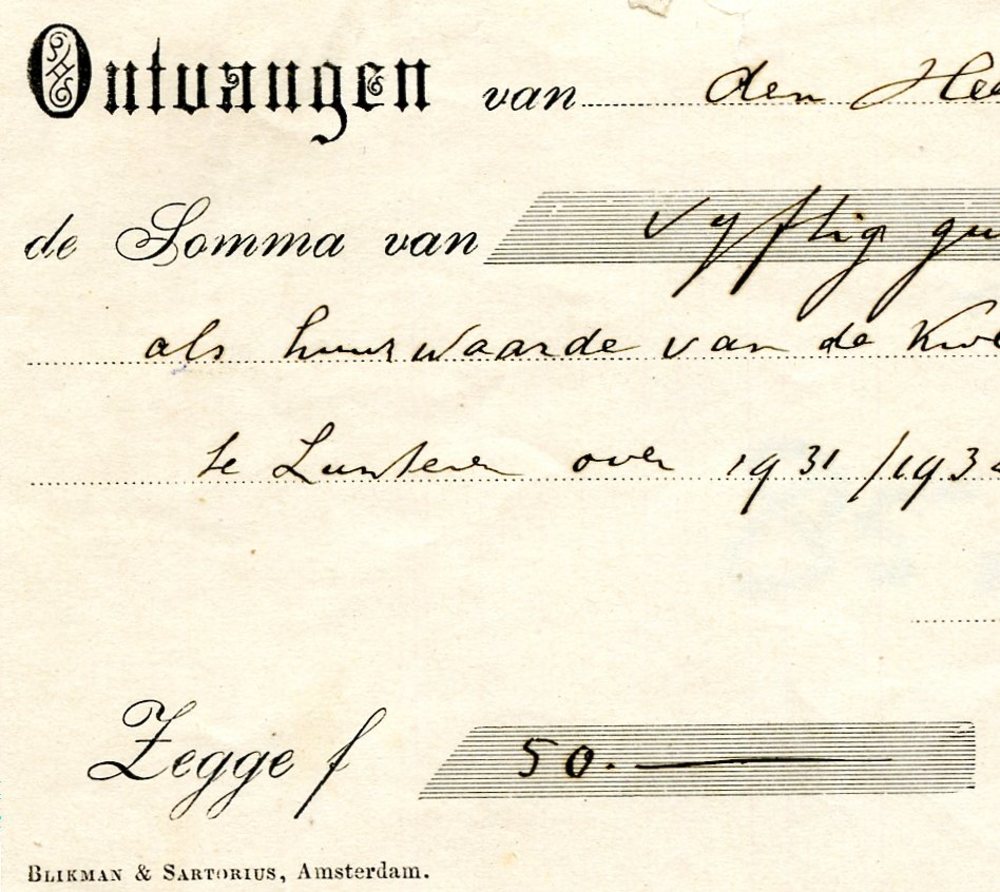 Ontvangen van den Hee
de Somma van vyftig gu
als huurwaarde van de Kwe
te Lunteren over 1931/193
Zegge f 50.—
BLIKMAN & SARTORIUS, Amsterdam.